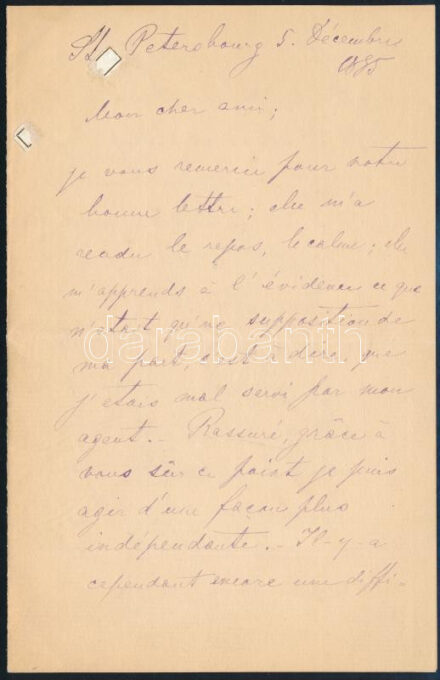 St. Petersbourg 5. Décembre
1885
Mon cher ami;
je vous remercie pour votre
bonne lettre; elle m'a
rendu le repos, le calme; elle
m'apprends à l'évidence ce que
n'était qu'une supposition de
ma part, c'est à dire que
j'etais mal servi par mon
agent. – Rassuré, grâce à
vous sûr ce point je puis
agir d'une façon plus
indépendante. – Il-y-a
cependant encore une diffi-
darabanth